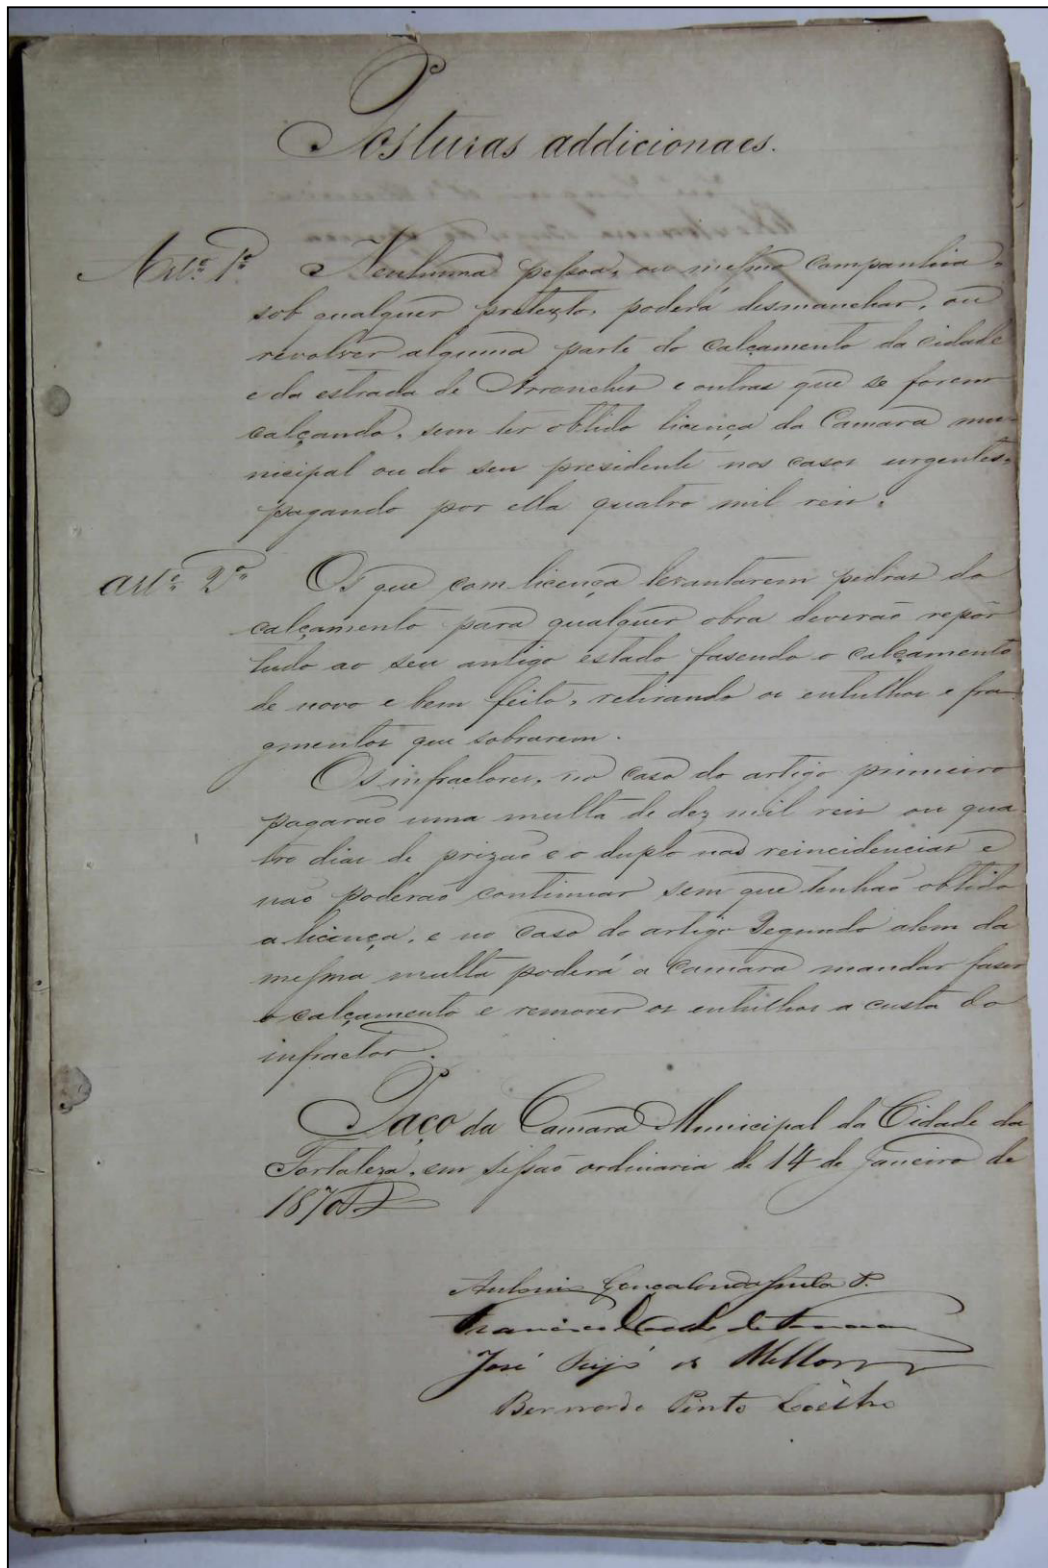 Posturas addicionaes.
Artº 1º Nenhuma pessoa, ou mesmo companhia
sob qualquer pretexto, poderá desmanchar, ou
revolver alguma parte do calçamento da cidade
e da estrada de Arronches e outras que se forem
calçando, sem ter obtido licença da Camara mu
nicipal ou do seu presidente nos casos urgentes,
pagando por ella quatro mil reis.
Artº 2º Os que com licença levantarem pedras do
calçamento para qualquer obra deverão repôr
tudo ao seu antigo estado fasendo o calçamento
de novo e bem feito, retirando os entulhos e fra
gmentos que sobrarem.
Os infractores, no caso do artigo primeiro
pagarão uma multa de dez mil reis ou qua
tro dias de prizão e o duplo nas reincidencias e
não poderão continuar sem que tenhão obtido
a licença, e no caso do artigo Segundo alem da
mesma multa poderá a Camara mandar faser
o calçamento e remover os entulhos a custa do
infractor.
Paço da Camara Municipal da Cidade da
Fortaleza, em sessão ordinaria de 14 de Janeiro de
1870
Antonio P.
Francisco de
José Feijó de Mello
Bernardo Pinto Coelho